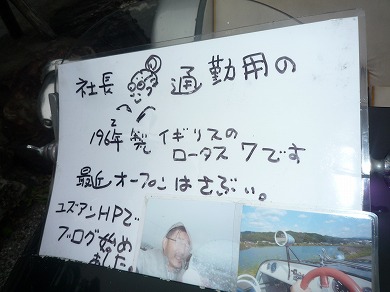 社長 通勤用の
1962年製 イギリスの
ロータス7です
最近オープンはさぶい。
ユズ・アンHPで
ブログ始め
ました。